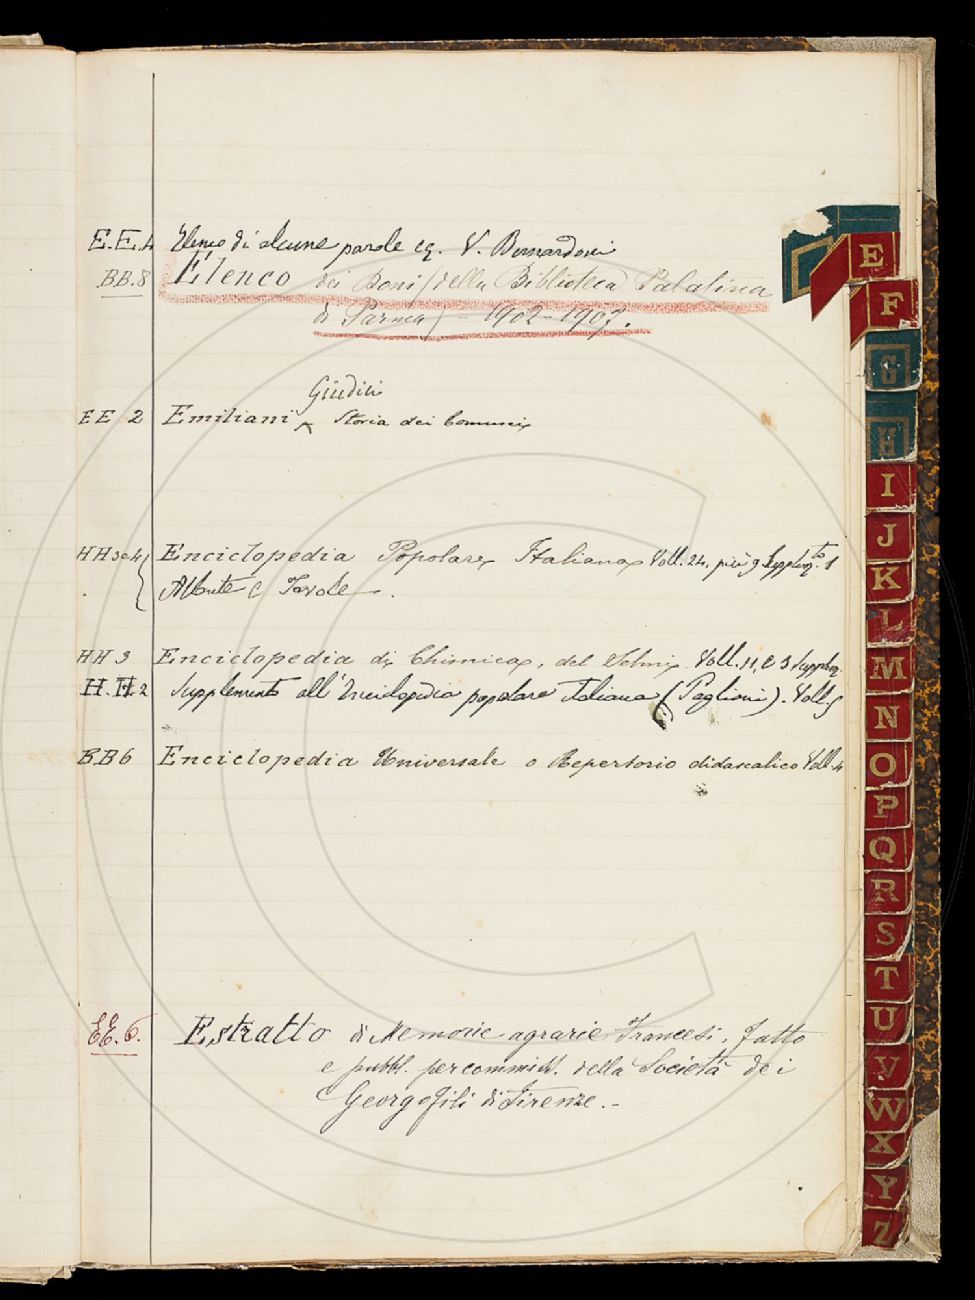 E.E.4 Elenco di alcune parole eq. V. Bernardoni
BB.8 Elenco dei Doni (della Biblioteca Palatina
di Parma) - 1902-1907.
Giudici
EE 2 Emiliani Storia dei Comuni
HH 3 e 4 Enciclopedia Popolare Italiana Voll. 24, più 9 Supplem.to 1
e Tavole.
HH 3 Enciclopedia di Chimica, del Selmi Voll. 11, e 3 Supplem.
H.H.2 Supplemento all'Enciclopedia popolare italiana (). Voll. 5
BB6 Enciclopedia Universale o Repertorio didascalico Voll. 4
EE. 6. Estratto di Memorie agrarie Francesi, fatto
e pubbl. per commiss. della Società dei
Georgofili di Firenze.-
E
F
G
H
I
J
K
L
M
N
O
P
Q
R
S
T
U
V
W
X
Y
Z
C